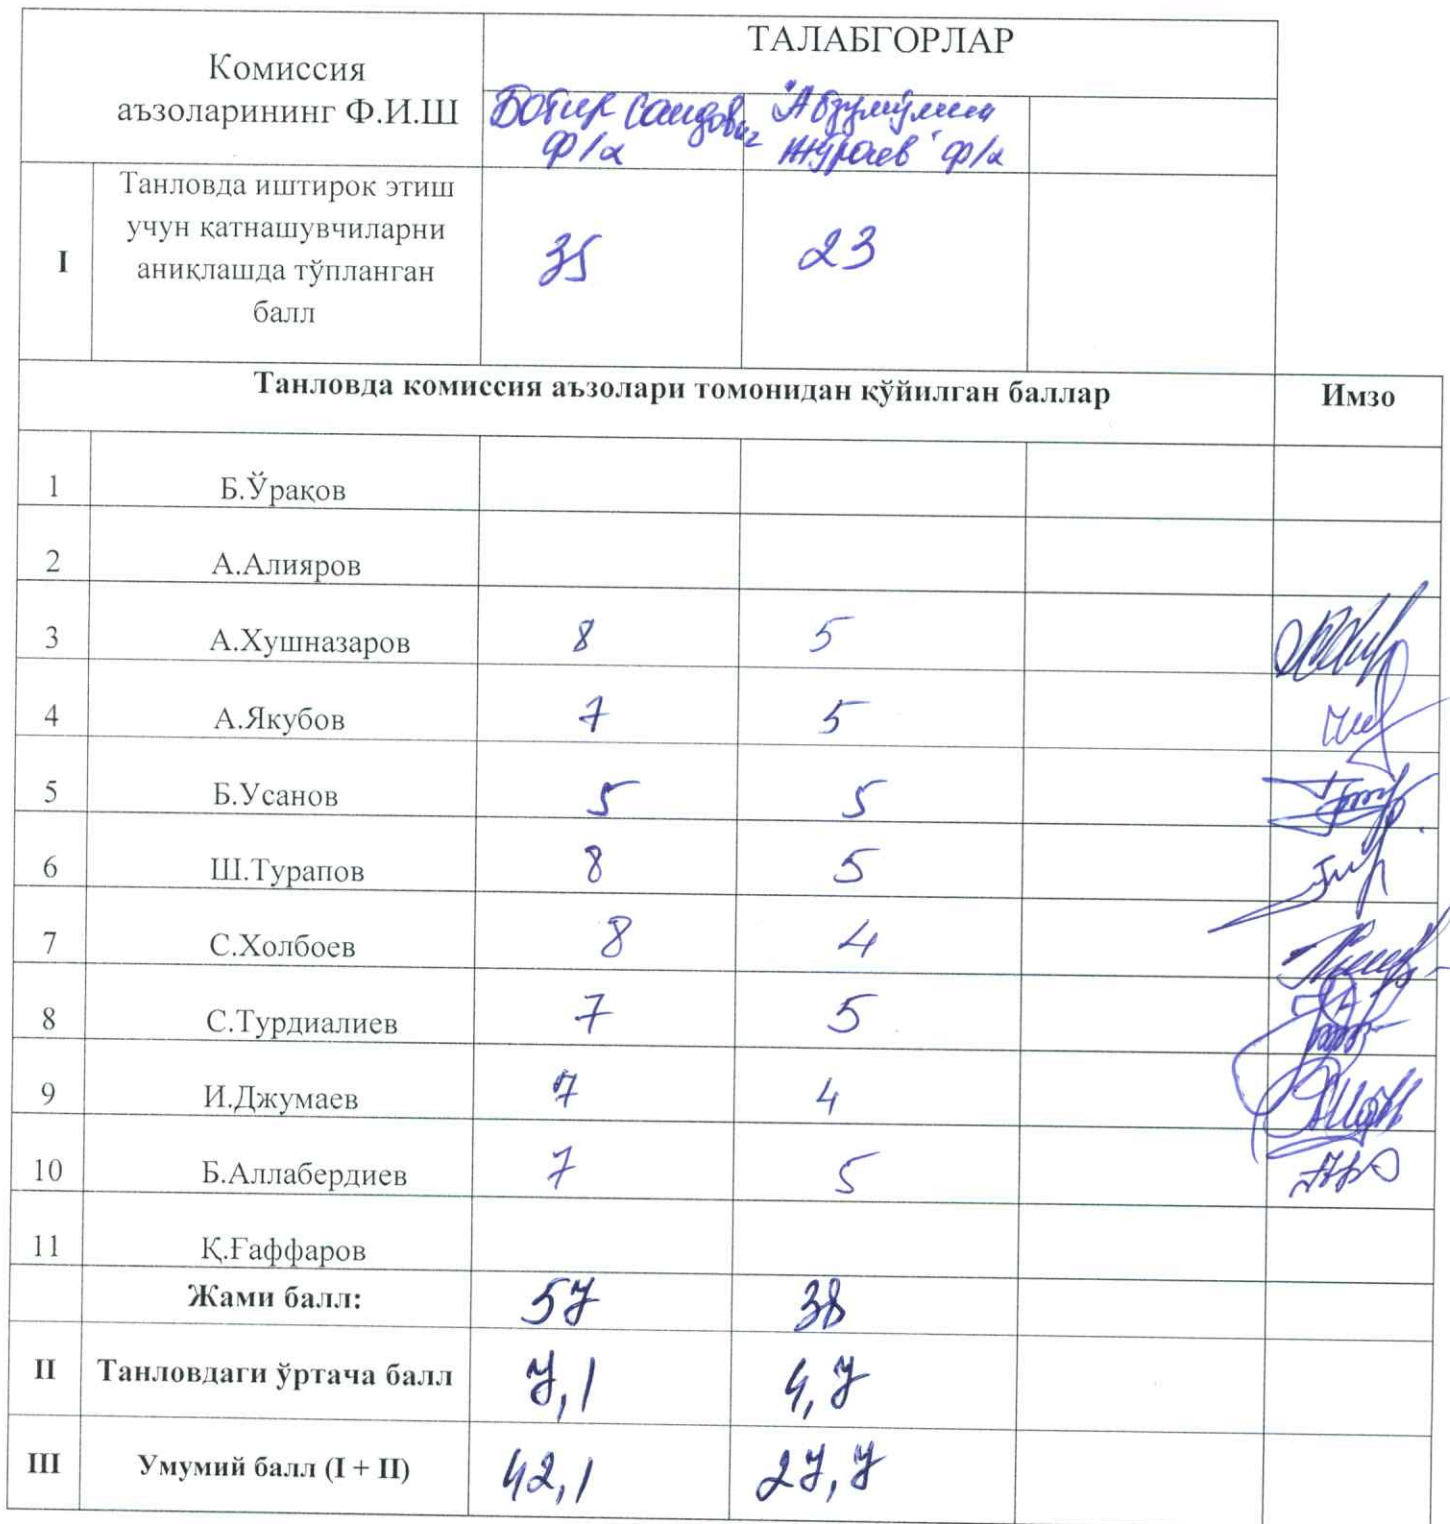 Комиссия
аъзоларининг Ф.И.Ш
ТАЛАБГОРЛАР
Ботир Саидович
ф/х
"Абдумўмин
Жўраев" ф/х
I
Танловда иштирок этиш
учун қатнашувчиларни
аниқлашда тўпланган
балл
35 23
Танловда комиссия аъзолари томонидан қўйилган баллар Имзо
1 Б.Ўрақов
2 А.Алияров
3 А.Хушназаров 8 5
4 А.Якубов 7 5
5 Б.Усанов 5 5
6 Ш.Турапов 8 5
7 С.Холбоев 8 4
8 С.Турдиалиев 7 5
9 И.Джумаев 7 4
10 Б.Аллабердиев 7 5
11 Қ.Ғаффаров
Жами балл: 57 38
II Танловдаги ўртача балл 7,1 4,7
III Умумий балл (I + II) 42,1 27,7